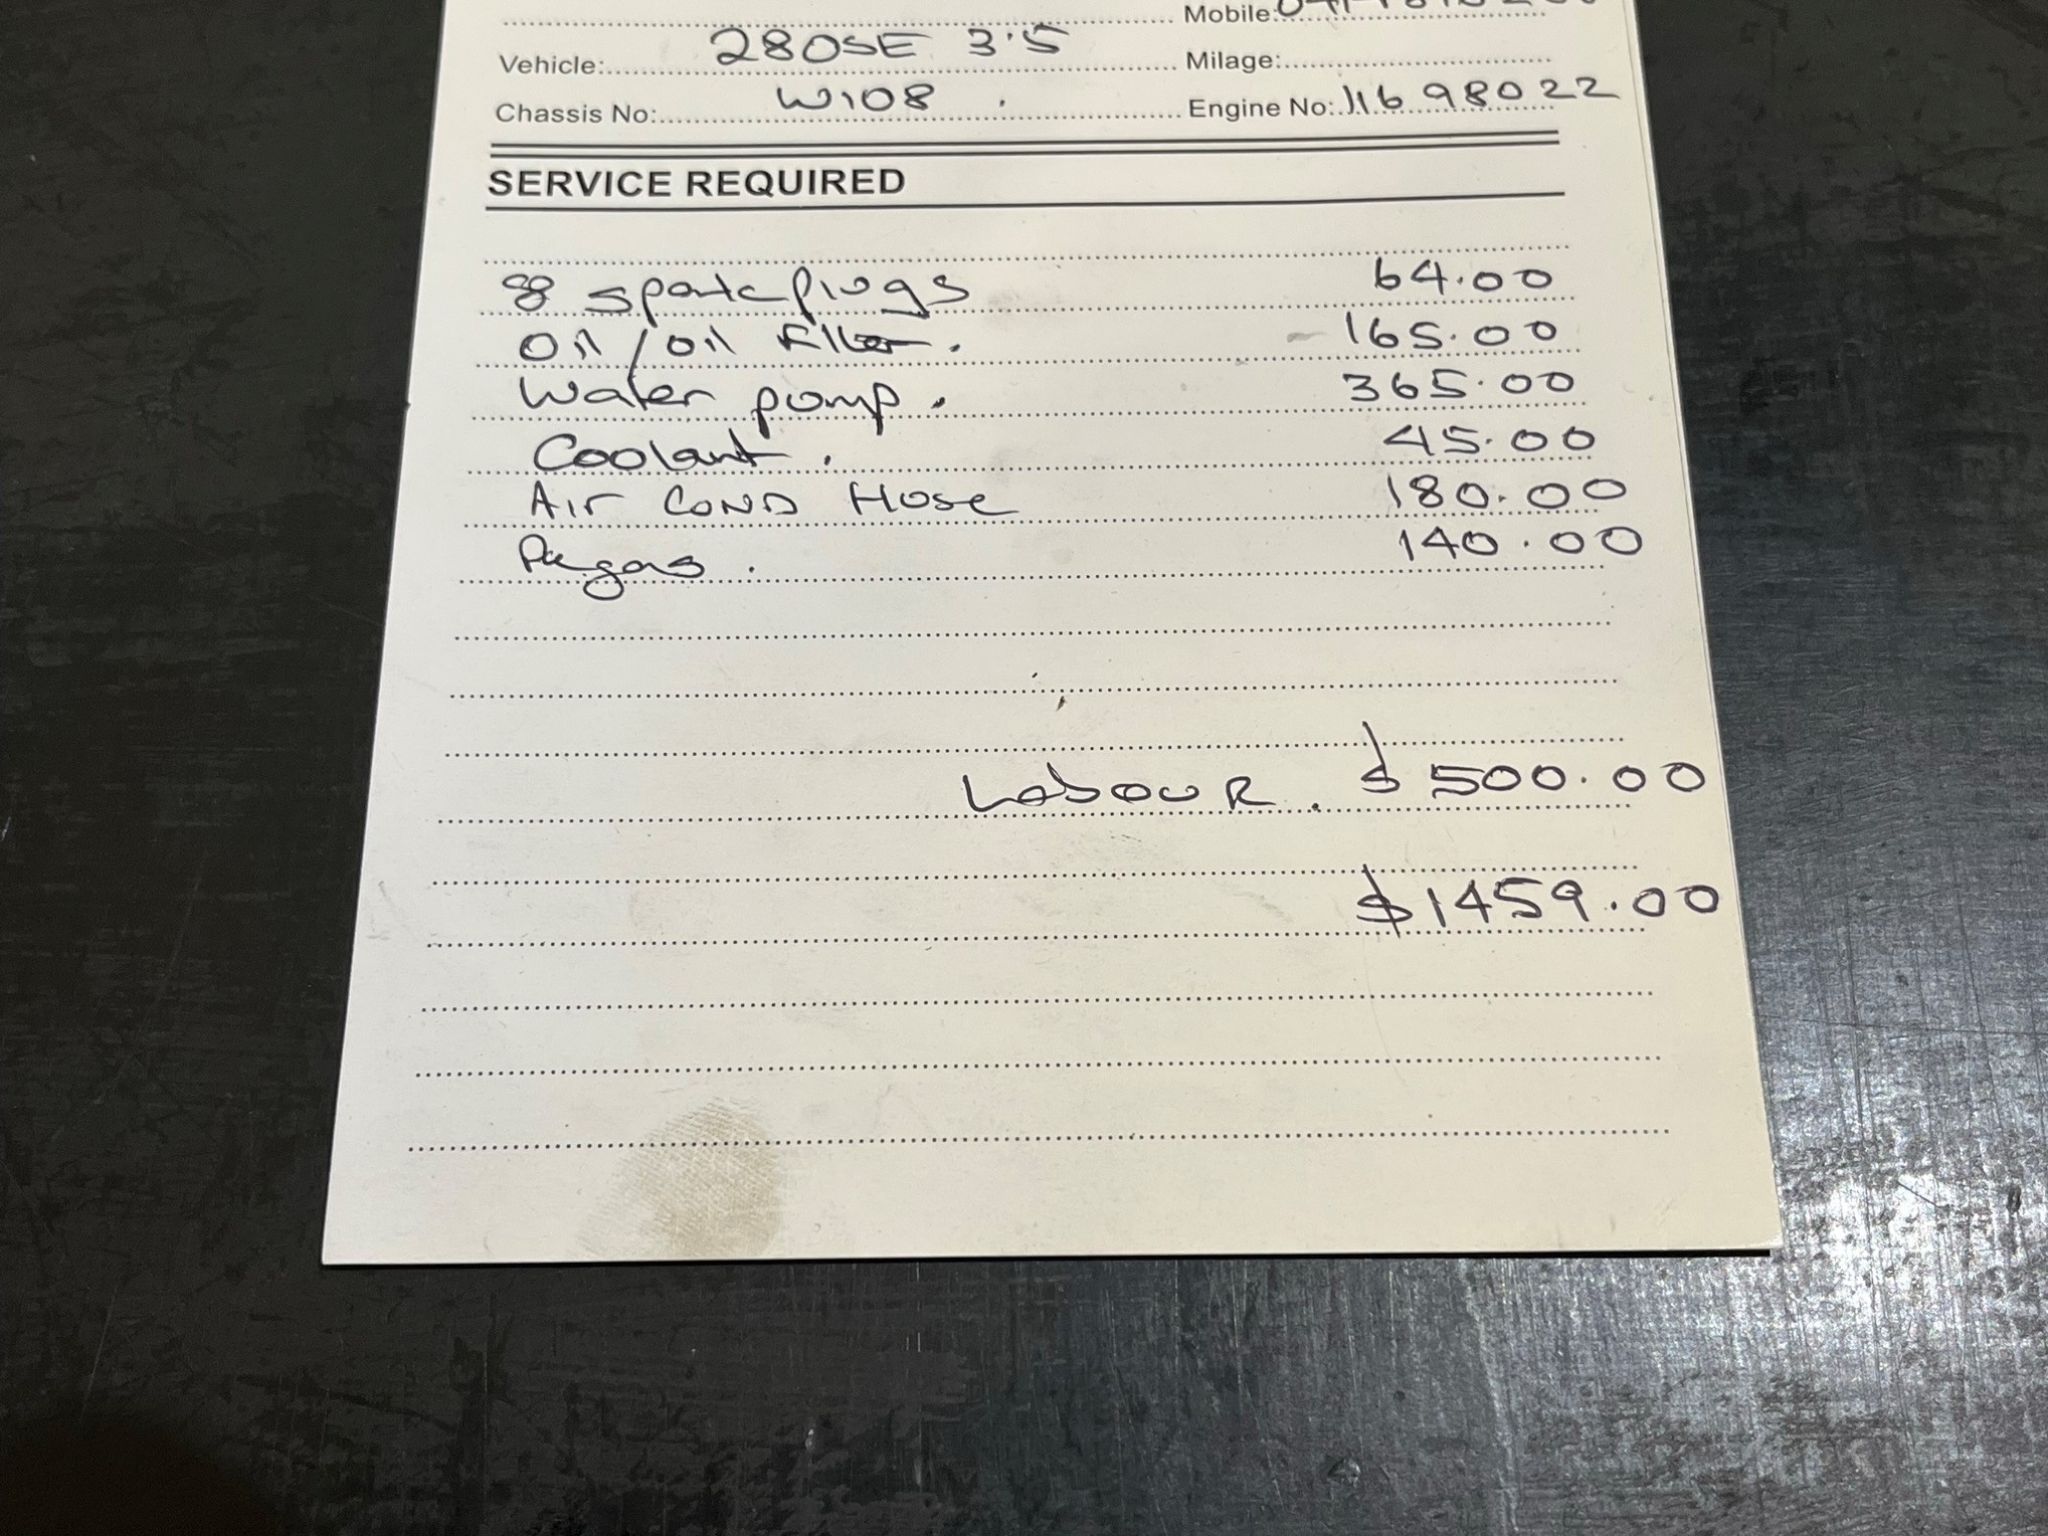 Mobile:
Vehicle: 280SE 3.5 Milage:
Chassis No: W108 . Engine No: 116 98022
SERVICE REQUIRED
8 spark plugs 64.00
Oil/oil filter. 165.00
Water pump. 365.00
Coolant. 45.00
Air COND Hose 180.00
Regas. 140.00
Labour. $500.00
$1459.00